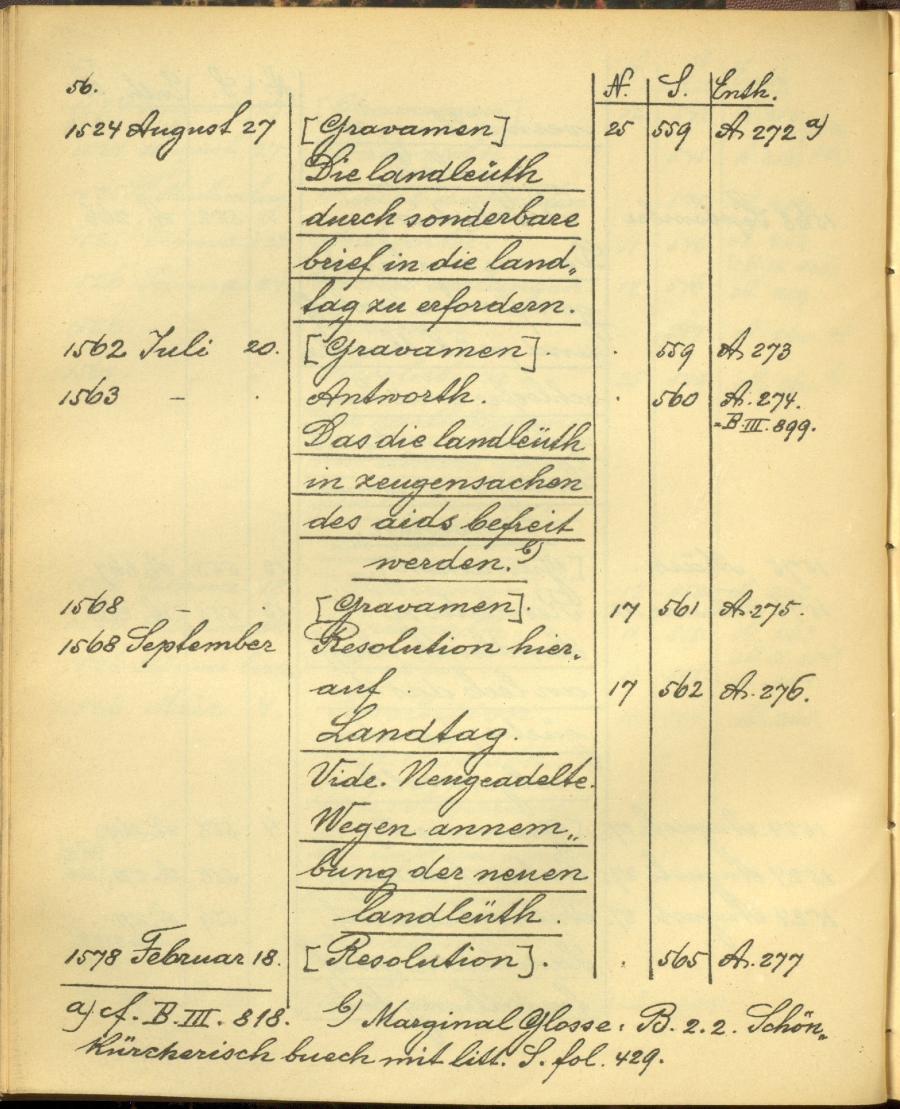 56. N. S. Enth.
1524 August 27 [Gravamen] 25 559 A. 272 a)
Die landleüth
durch sonderbare
brief in die land„
tag zu erfordern.
1562 Juli 20. [Gravamen]. . 559 A. 273
1563 – . Antworth. . 560 A. 274.
= B. III. 899.
Das die landleüth
in zeugensachen
des aids befreit
werden. b)
1568 – . [Gravamen]. 17 561 A. 275.
1568 September Resolution hier„
auf 17 562 A. 276.
Landtag.
Vide. Neugeadelte.
Wegen annem„
bung der neuen
landleüth.
1578 Februar 18. [Resolution]. . 565 A. 277
a) cf. B. III. 818. b) Marginal Glosse: B. 2. 2. Schön„
kürcherisch buech mit litt. S. fol. 429.